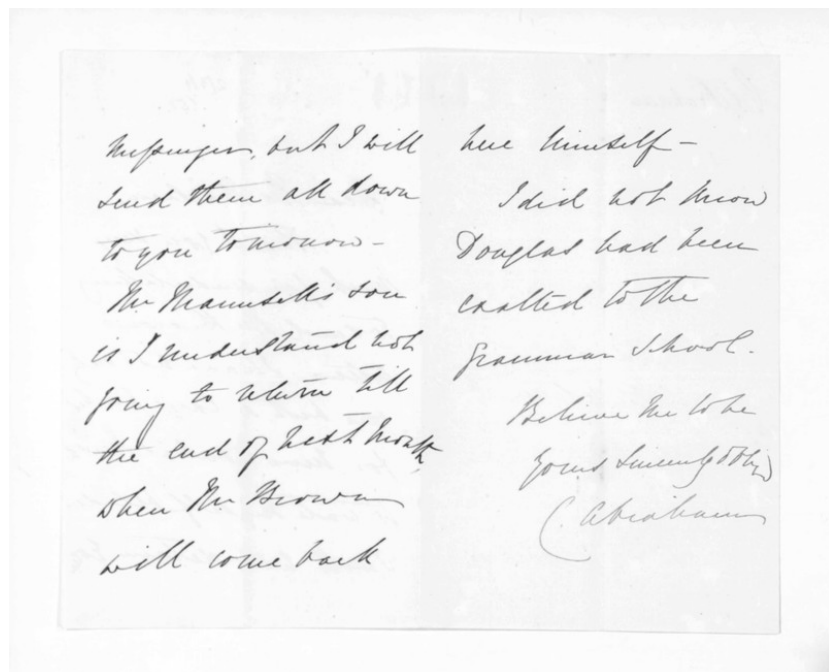 Messenger, but I will
send them all down
to you tomorrow –
Mr Maunsell's son
is I understand not
going to return till
the end of next Month
when Mr Brown
will come back
here himself –
I did not know
Douglas had been
exalted to the
Grammar School.
Believe me to be
Yours sincerely &
C Abraham